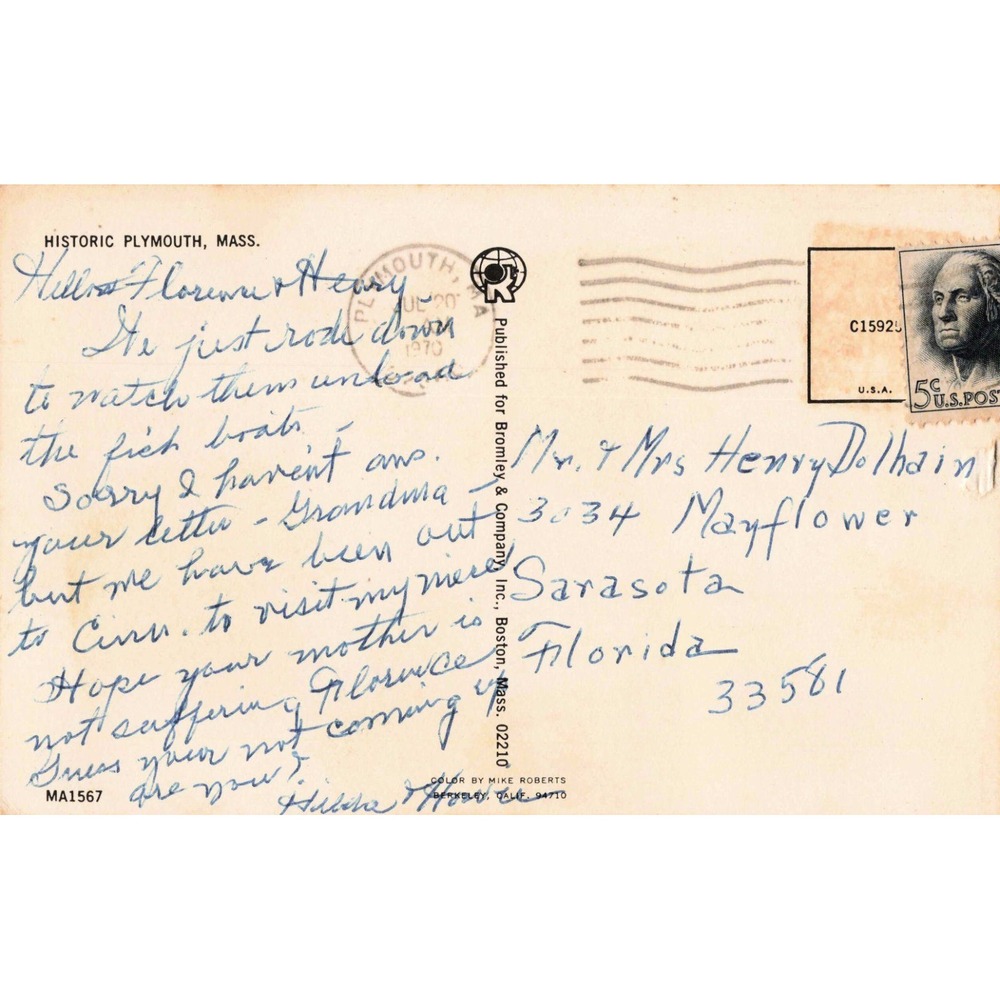 HISTORIC PLYMOUTH, MASS.
Hello Florence & Henry -
We just rode down
to watch them unload
the fish boats -
Sorry I haven't ans.
your letter - Grandma -
but we have been out
to Cinn. to visit my niece
Hope your mother is
not suffering Florence
Guess your not coming up
are you?
Hilda & Howie
MA1567
PLYMOUTH, MA
JUL 20
AM
1970
Published for Bromley & Company, Inc., Boston, Mass. 02210
COLOR BY MIKE ROBERTS
BERKELEY, CALIF. 94710
C15925
U.S.A.
5c
U.S. POS
Mr. & Mrs Henry Dolhain
3034 Mayflower
Sarasota
Florida
33581